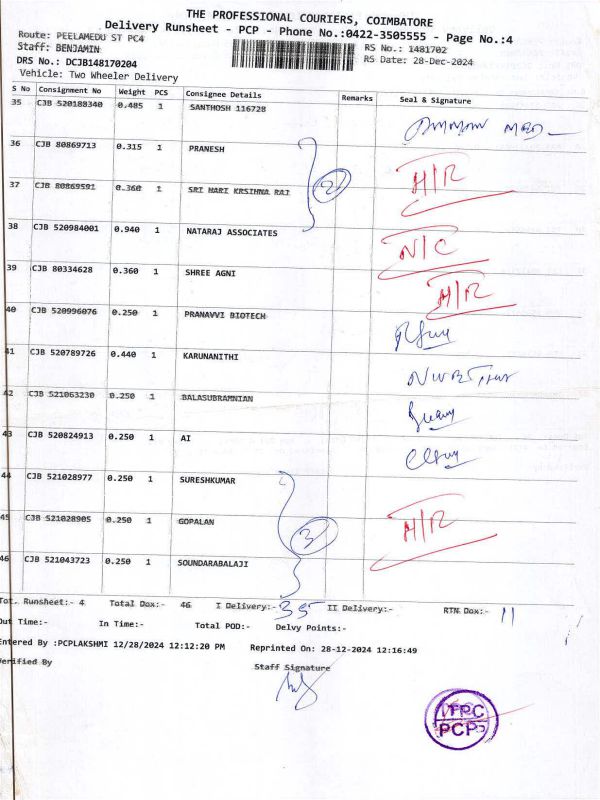 THE PROFESSIONAL COURIERS, COIMBATORE
Delivery Runsheet - PCP - Phone No.:0422-3505555 - Page No.:4
Route: PEELAMEDU ST PC4 RS No.: 1481702
Staff: BENJAMIN RS Date: 28-Dec-2024
DRS No.: DCJB148170204
Vehicle: Two Wheeler Delivery
S No Consignment No Weight PCS Consignee Details Remarks Seal & Signature
35 CJB 520188340 0.485 1 SANTHOSH 116728
36 CJB 80869713 0.315 1 PRANESH H/R
37 CJB 80869591 0.360 1 SRI HARI KRSIHNA RAJ 2
38 CJB 520984001 0.940 1 NATARAJ ASSOCIATES N/C
39 CJB 80334628 0.360 1 SHREE AGNI H/R
40 CJB 520996076 0.250 1 PRANAVVI BIOTECH
41 CJB 520789726 0.440 1 KARUNANITHI
42 CJB 521063230 0.250 1 BALASUBRAMNIAN
43 CJB 520824913 0.250 1 AI
44 CJB 521028977 0.250 1 SURESHKUMAR
45 CJB 521028905 0.250 1 GOPALAN 3 H/R
46 CJB 521043723 0.250 1 SOUNDARABALAJI
Tot. Runsheet:- 4 Total Dox:- 46 I Delivery:- 35 II Delivery:- RTN Dox:- 11
Out Time:- In Time:- Total POD:- Delvy Points:-
Entered By :PCPLAKSHMI 12/28/2024 12:12:20 PM Reprinted On: 28-12-2024 12:16:49
Verified By Staff Signature
TPC
PCP